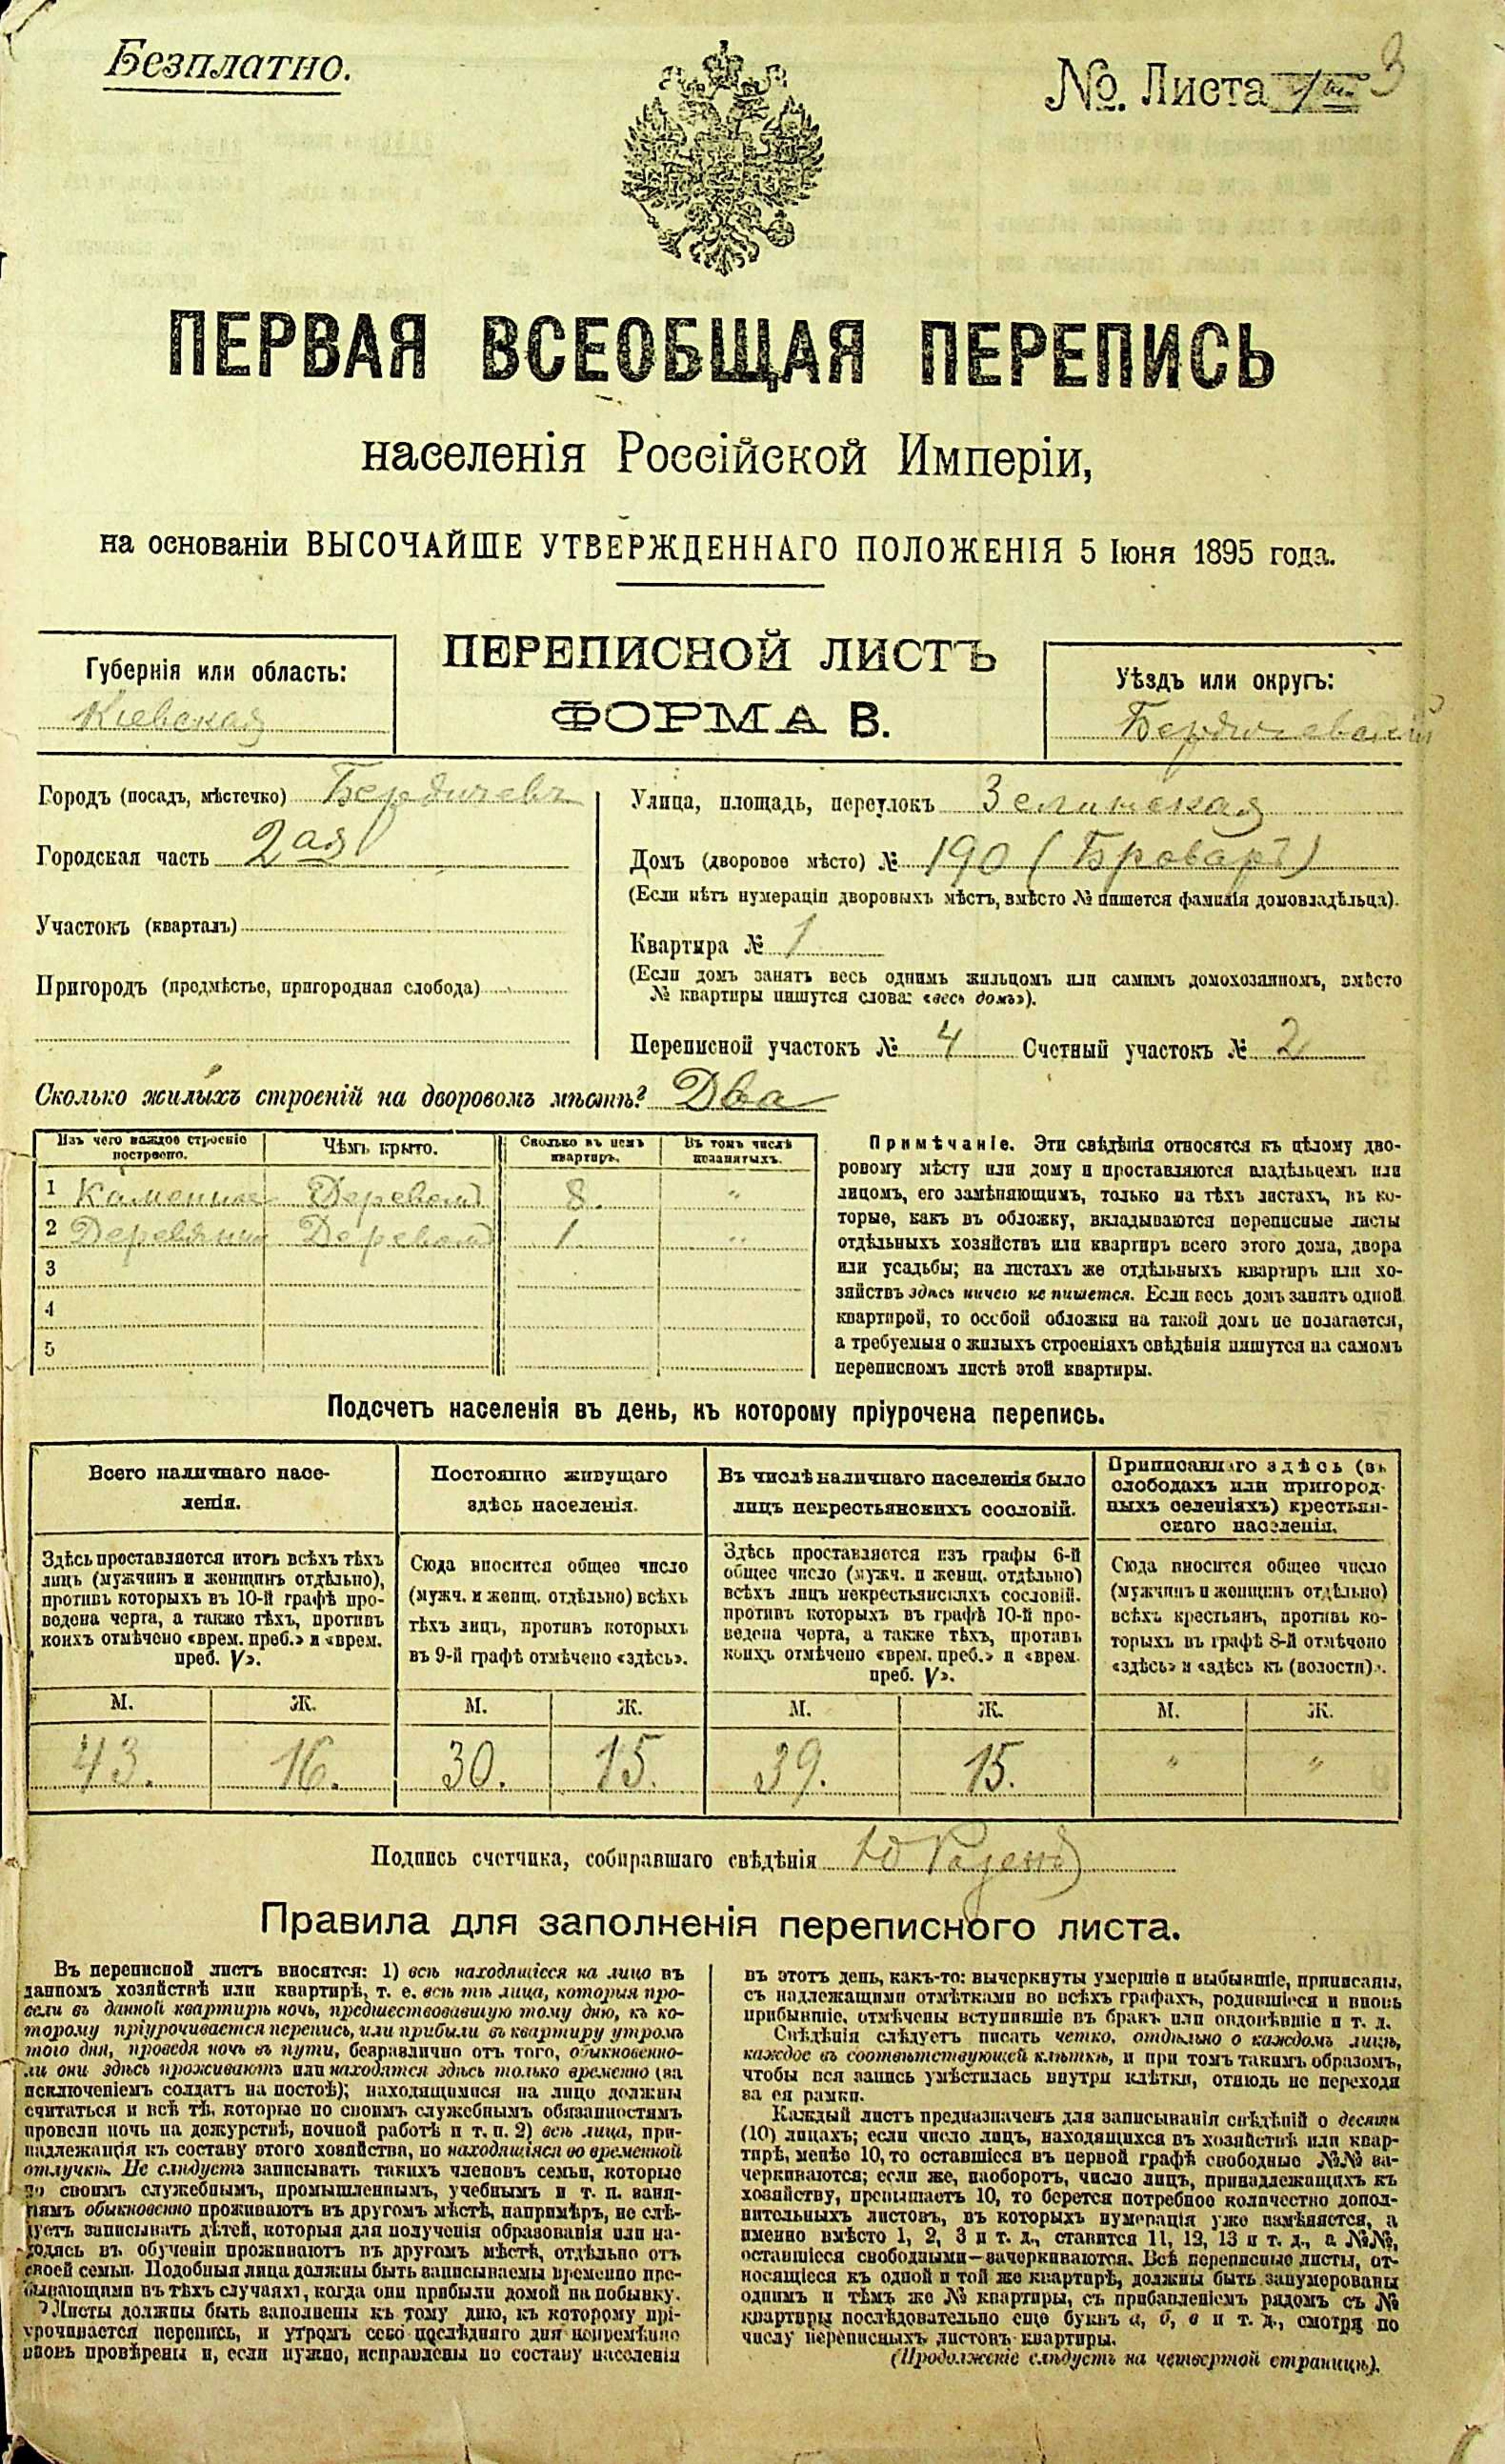 Безплатно.
№. Листа
3
ПЕРВАЯ ВСЕОБЩАЯ ПЕРЕПИСЬ
населенія Россійской Имперіи,
на основаніи ВЫСОЧАЙШЕ УТВЕРЖДЕННАГО ПОЛОЖЕНІЯ 5 Іюня 1895 года.
Губернія или область:
Кіевская
ПЕРЕПИСНОЙ ЛИСТЪ
ФОРМА В.
Уѣздъ или округъ:
Бердичевскій
Городъ (посадъ, мѣстечко) Бердичевъ
Городская часть 2ая
Участокъ (кварталъ)
Пригородъ (предмѣстье, пригородная слобода)
Улица, площадь, переулокъ
Домъ (дворовое мѣсто) № 190 (Броваръ)
(Если нѣтъ нумераціи дворовыхъ мѣстъ, вмѣсто № пишется фамилія домовладѣльца).
Квартира № 1
(Если домъ занятъ весь однимъ жильцомъ или самимъ домохозяиномъ, вмѣсто
№ квартиры пишутся слова: «весь домъ»).
Переписной участокъ № 4 Счетный участокъ № 2
Сколько жилыхъ строеній на дворовомъ мѣстѣ? Два
Изъ чего каждое строеніе построено.
Чѣмъ крыто.
Сколько въ немъ квартиръ.
Въ томъ числѣ незанятыхъ.
1 Каменное Деревомъ 8. "
2 Деревянное Деревомъ 1. "
3
4
5
Примѣчаніе. Эти свѣдѣнія относятся къ цѣлому дво-
ровому мѣсту или дому и проставляются владѣльцемъ или
лицомъ, его замѣняющимъ, только на тѣхъ листахъ, въ ко-
торые, какъ въ обложку, вкладываются переписные листы
отдѣльныхъ хозяйствъ или квартиръ всего этого дома, двора
или усадьбы; на листахъ же отдѣльныхъ квартиръ или хо-
зяйствъ здѣсь ничего не пишется. Если весь домъ занятъ одной
квартирой, то особой обложки на такой домъ не полагается,
а требуемыя о жилыхъ строеніяхъ свѣдѣнія пишутся на самомъ
переписномъ листѣ этой квартиры.
Подсчетъ населенія въ день, къ которому пріурочена перепись.
Всего наличнаго насе-
ленія.
Здѣсь проставляется итогъ всѣхъ тѣхъ
лицъ (мужчинъ и женщинъ отдѣльно),
противъ которыхъ въ 10-й графѣ про-
ведена черта, а также тѣхъ, противъ
коихъ отмѣчено «врем. преб.» и «врем.
преб. V».
М. Ж.
43. 16.
Постоянно живущаго
здѣсь населенія.
Сюда вносится общее число
(мужч. и женщ. отдѣльно) всѣхъ
тѣхъ лицъ, противъ которыхъ
въ 9-й графѣ отмѣчено «здѣсь».
М. Ж.
30. 15.
Въ числѣ наличнаго населенія было
лицъ некрестьянскихъ сословій.
Здѣсь проставляется изъ графы 6-й
общее число (мужч. и женщ. отдѣльно)
всѣхъ лицъ некрестьянскихъ сословій,
противъ которыхъ въ графѣ 10-й про-
ведена черта, а также тѣхъ, противъ
коихъ отмѣчено «врем. преб.» и «врем.
преб. V».
М. Ж.
39. 15.
Приписаннаго здѣсь (въ
слободахъ или пригород-
ныхъ селеніяхъ) крестьян-
скаго населенія.
Сюда вносится общее число
(мужчинъ и женщинъ отдѣльно)
всѣхъ крестьянъ, противъ ко-
торыхъ въ графѣ 8-й отмѣчено
«здѣсь» и «здѣсь къ (волости)».
М. Ж.
" "
Подпись счетчика, собиравшаго свѣдѣнія
Правила для заполненія переписного листа.
Въ переписной листъ вносятся: 1) всѣ находящіеся на лицо въ
данномъ хозяйствѣ или квартирѣ, т. е. всѣ тѣ лица, которыя про-
вели въ данной квартирѣ ночь, предшествовавшую тому дню, къ ко-
торому пріурочивается перепись, или прибыли въ квартиру утромъ
того дня, проведя ночь въ пути, безразлично отъ того, обыкновенно-
ли они здѣсь проживаютъ или находятся здѣсь только временно (за
исключеніемъ солдатъ на постоѣ); находящимися на лицо должны
считаться и всѣ тѣ, которые по своимъ служебнымъ обязанностямъ
провели ночь на дежурствѣ, ночной работѣ и т. п. 2) всѣ лица, при-
надлежащія къ составу этого хозяйства, но находящіяся во временной
отлучкѣ. Не слѣдуетъ записывать такихъ членовъ семьи, которые
по своимъ служебнымъ, промышленнымъ, учебнымъ и т. п. заня-
тіямъ обыкновенно проживаютъ въ другомъ мѣстѣ, напримѣръ, не слѣ-
дуетъ записывать дѣтей, которыя для полученія образованія или на-
ходясь въ обученіи проживаютъ въ другомъ мѣстѣ, отдѣльно отъ
своей семьи. Подобныя лица должны быть записываемы временно пре-
бывающими въ тѣхъ случаяхъ, когда они прибыли домой на побывку.
Листы должны быть заполнены къ тому дню, къ которому прі-
урочивается перепись, и утромъ сего послѣдняго дня непремѣнно
вновь провѣрены и, если нужно, исправлены по составу населенія
въ этотъ день, какъ-то: вычеркнуты умершіе и выбывшіе, приписаны,
съ надлежащими отмѣтками во всѣхъ графахъ, родившіеся и вновь
прибывшіе, отмѣчены вступившіе въ бракъ или овдовѣвшіе и т. д.
Свѣдѣнія слѣдуетъ писать четко, отдѣльно о каждомъ лицѣ,
каждое въ соотвѣтствующей клѣткѣ, и при томъ такимъ образомъ,
чтобы вся запись умѣстилась внутри клѣтки, отнюдь не переходя
за ея рамки.
Каждый листъ предназначенъ для записыванія свѣдѣній о десяти
(10) лицахъ; если число лицъ, находящихся въ хозяйствѣ или квар-
тирѣ, менѣе 10, то оставшіеся въ первой графѣ свободные №№ за-
черкиваются; если же, наоборотъ, число лицъ, принадлежащихъ къ
хозяйству, превышаетъ 10, то берется потребное количество допол-
нительныхъ листовъ, въ которыхъ нумерація уже измѣняется, а
именно вмѣсто 1, 2, 3 и т. д., ставится 11, 12, 13 и т. д., а №№,
оставшіеся свободными—зачеркиваются. Всѣ переписные листы, от-
носящіеся къ одной и той же квартирѣ, должны быть занумерованы
однимъ и тѣмъ же № квартиры, съ прибавленіемъ рядомъ съ №
квартиры послѣдовательно еще буквъ а, б, в и т. д., смотря по
числу переписныхъ листовъ квартиры.
(Продолженіе слѣдуетъ на четвертой страницѣ).